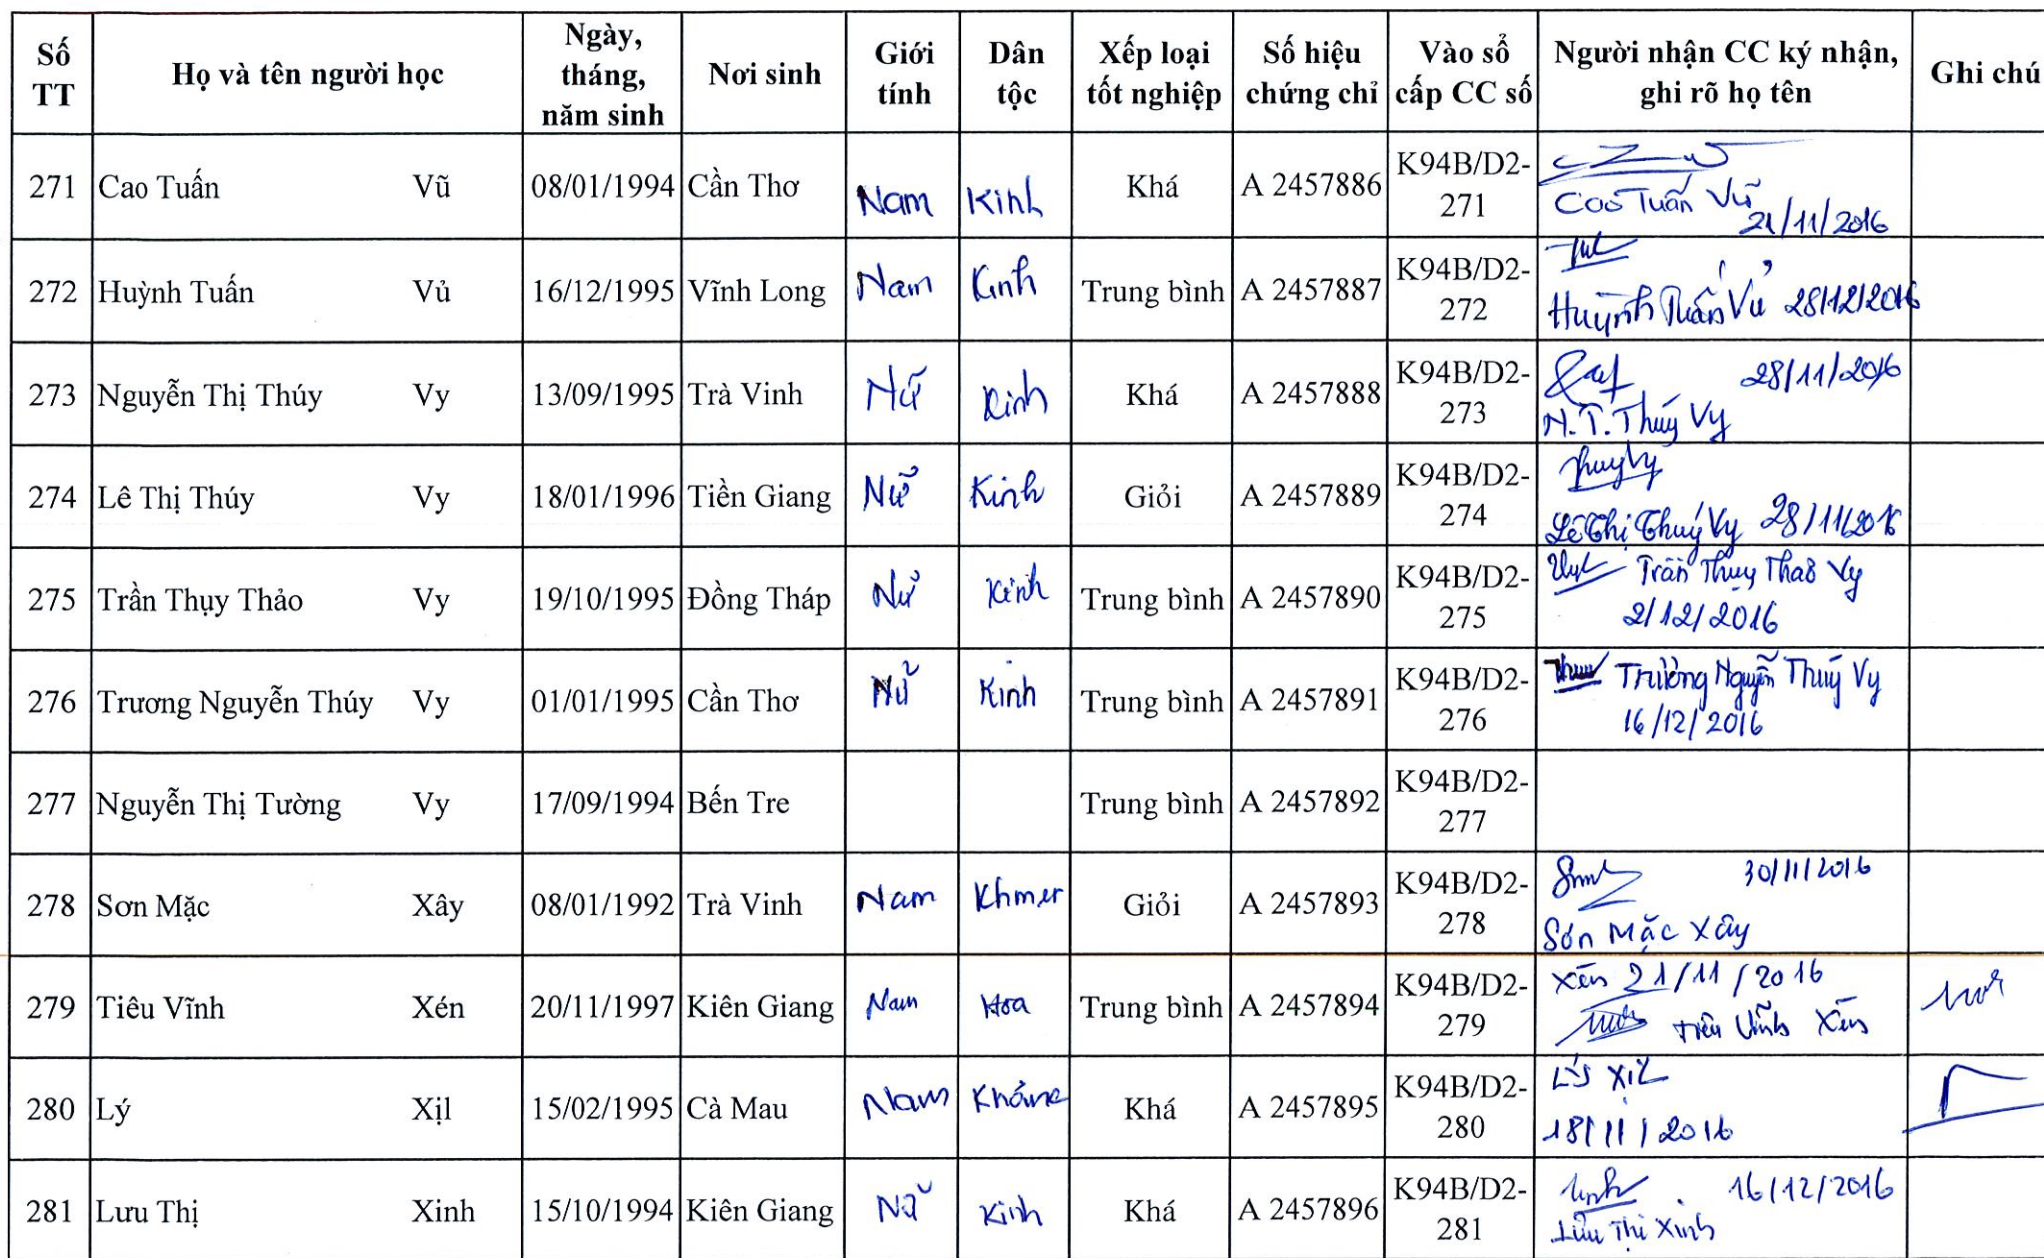 Số TT Họ và tên người học Ngày, tháng, năm sinh Nơi sinh Giới tính Dân tộc Xếp loại tốt nghiệp Số hiệu chứng chỉ Vào sổ cấp CC số Người nhận CC ký nhận, ghi rõ họ tên Ghi chú
271 Cao Tuấn Vũ 08/01/1994 Cần Thơ Nam Kinh Khá A 2457886 K94B/D2-271 Cao Tuấn Vũ 21/11/2016
272 Huỳnh Tuấn Vủ 16/12/1995 Vĩnh Long Nam Kinh Trung bình A 2457887 K94B/D2-272 Huỳnh Tuấn Vủ 28/12/2016
273 Nguyễn Thị Thúy Vy 13/09/1995 Trà Vinh Nữ Kinh Khá A 2457888 K94B/D2-273 28/11/2016 N.T.Thúy Vy
274 Lê Thị Thúy Vy 18/01/1996 Tiền Giang Nữ Kinh Giỏi A 2457889 K94B/D2-274 Thuyvy Lê Thị Thuý Vy 28/11/2016
275 Trần Thụy Thảo Vy 19/10/1995 Đồng Tháp Nữ Kinh Trung bình A 2457890 K94B/D2-275 Trần Thụy Thảo Vy 2/12/2016
276 Trương Nguyễn Thúy Vy 01/01/1995 Cần Thơ Nữ Kinh Trung bình A 2457891 K94B/D2-276 Trương Nguyễn Thuý Vy 16/12/2016
277 Nguyễn Thị Tường Vy 17/09/1994 Bến Tre Trung bình A 2457892 K94B/D2-277
278 Sơn Mặc Xây 08/01/1992 Trà Vinh Nam Khmer Giỏi A 2457893 K94B/D2-278 30/11/2016 Sơn Mặc Xây
279 Tiêu Vĩnh Xén 20/11/1997 Kiên Giang Nam Hoa Trung bình A 2457894 K94B/D2-279 Xén 21/11/2016 Tiêu Vĩnh Xén
280 Lý Xịl 15/02/1995 Cà Mau Nam Khá A 2457895 K94B/D2-280 Lý Xịl 18/11/2016
281 Lưu Thị Xinh 15/10/1994 Kiên Giang Nữ Kinh Khá A 2457896 K94B/D2-281 16/12/2016 Lưu Thị Xinh